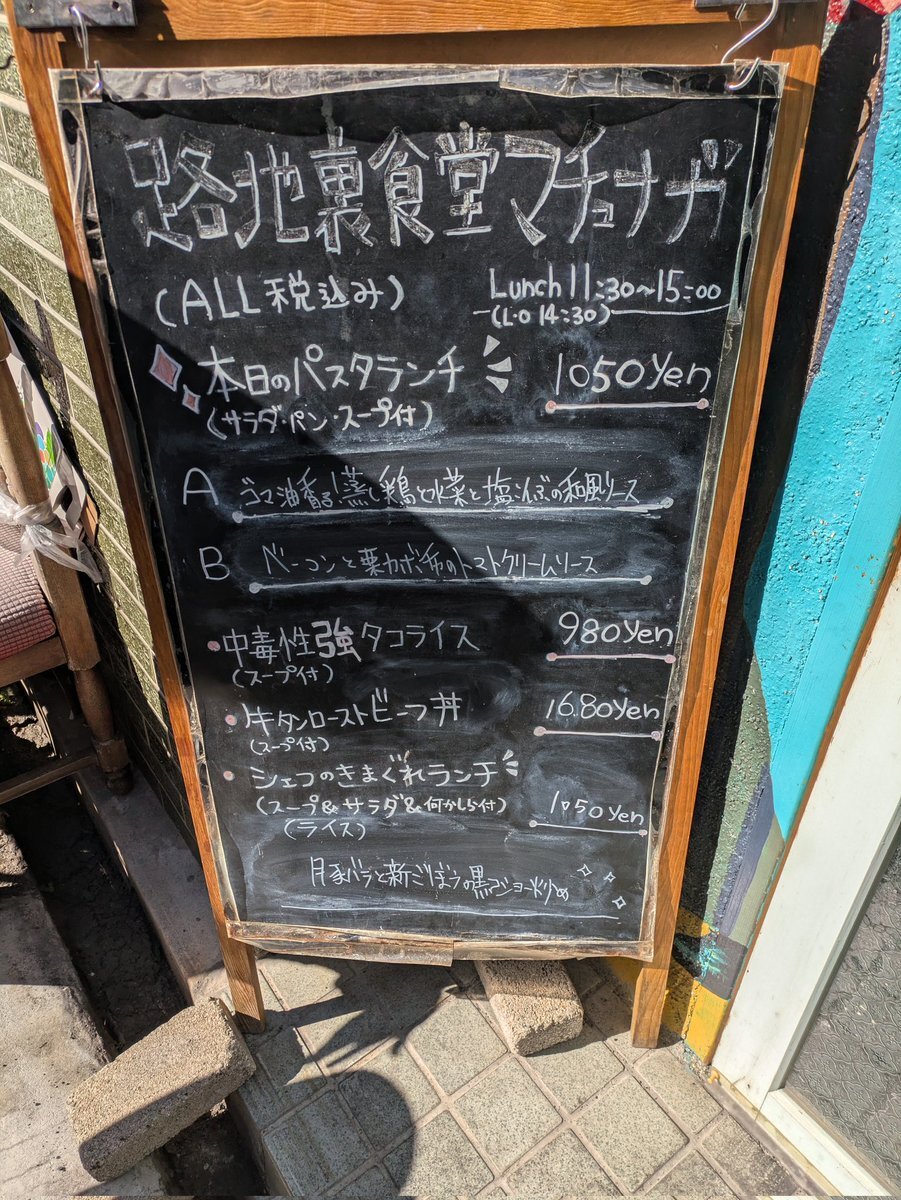 路地裏食堂マチョナガ
(ALL 税込み)
Lunch 11:30〜15:00
(L・O 14:30)
本日のパスタランチ 1050Yen
(サラダ・パン・スープ付)
A ゴマ油香る!蒸し鶏と水菜と塩こんぶの和風ソース
B ベーコンと栗カボチャのトマトクリームソース
・中毒性強タコライス 980Yen
(スープ付)
・牛タンローストビーフ丼 1680Yen
(スープ付)
・シェフのきまぐれランチ
(スープ&サラダ&何かしら付) 1050Yen
(ライス)
豚バラと新ごぼうの黒コショー炒め